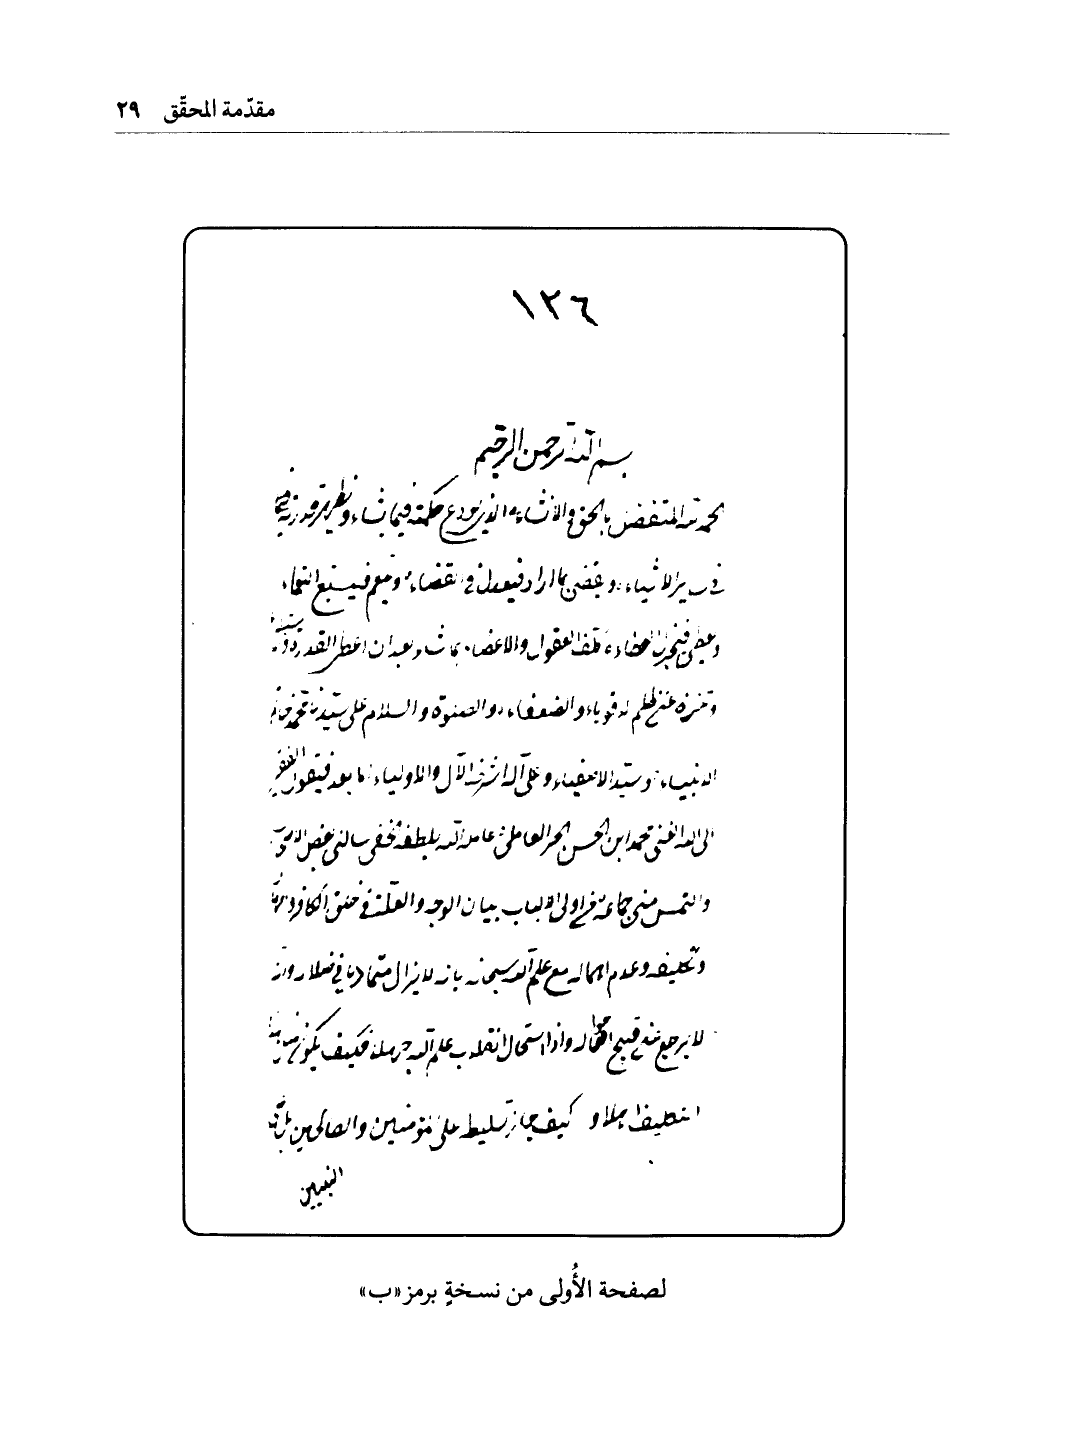 مقدّمة المحقّق ٢٩
١٢٦
بسم الله الرحمن الرحيم
الحمد لله المتفضل بالخلق والانشاء الذي يودع حكمته فيما شاء ويظهر قدرته
في سائر الاشياء ويقضي بما اراد فيعدل في القضاء وينعم فيسبغ النعماء
ويعطي فيجزل العطاء كلف العقول والاعضاء بما شاء بعد ان اعطى القدرة
والضعفاء والصلوة والسلام على سيدنا محمد خاتم
الانبياء وسيد الاصفياء وعلى آله اشرف الآل والاولياء اما بعد فيقول الفقير
الى الله الغني محمد ابن الحسن الحر العاملي عامله الله بلطفه الخفي سالني بعض
والتمس مني جماعة من اولي الالباب بيان الوجه والعلة في خلق الكافر
وتكليفه وعدم اهماله مع علم الله سبحانه بانه لا يزال متماديا في ضلاله وانه
لا يرجع عن قبيح افعاله واذا استحال انقلاب علم الله جهلا فكيف يكون
التكليف اهلا وكيف جاز تسليط على المؤمنين والصالحين بل
النبيين
لصفحة الأُولى من نسخةٍ برمز «ب»